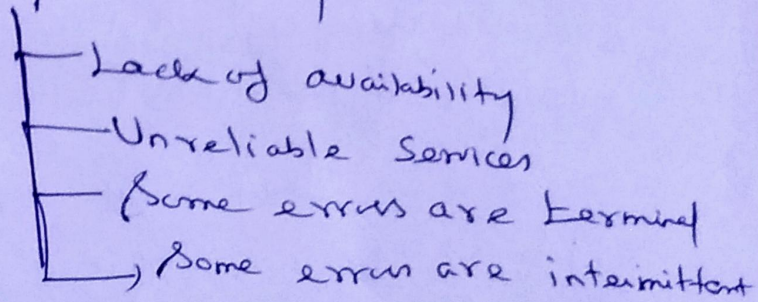 Lack of availability
Unreliable Services
Some errors are terminal
Some errors are intermittent